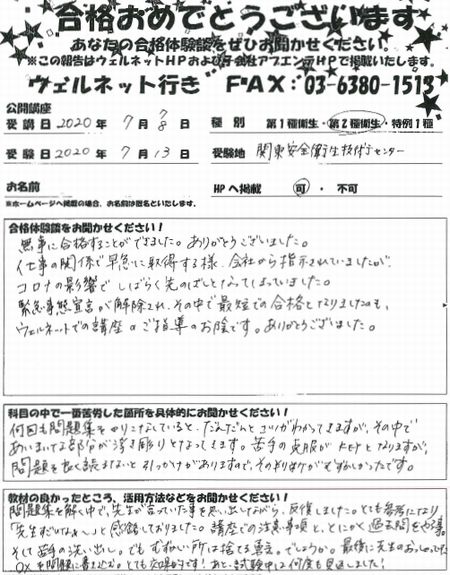 合格おめでとうございます
あなたの合格体験談をぜひお聞かせください。
※この報告はウェルネットHPおよび子会社アプエンテHPで掲載いたします。
ウェルネット行き FAX：03-6380-1513
公開講座
受講日 2020 年 7 月 7/8 日 種別 第1種衛生・第2種衛生・特例1種
受験日 2020 年 7 月 13 日 受験地 関東安全衛生技術センター
お名前 HPへ掲載 可 ・ 不可
※ホームページへ掲載の場合、お名前は匿名といたします。
合格体験談をお聞かせください！
無事に合格することができました。ありがとうございました。
仕事の関係で早急に取得する様、会社から指示されていましたが、
コロナの影響でしばらく先のばしとなってしまっていました。
緊急事態宣言が解除され、その中で最短での合格となりましたのも、
ウェルネットでの講座のご指導のお陰です。ありがとうございました。
科目の中で一番苦労した箇所を具体的にお聞かせください！
何回も問題集をやりこなしていると、だんだんとコツがわかってきますが、その中で
あいまいな部分が浮き彫りとなってきます。苦手の克服がKEYとなりますが、
問題をよく読まないと引っかけがありますので、その見分けがむずかしかったです。
教材の良かったところ、活用方法などをお聞かせください！
問題集を解く中で、先生が言っていた事を思い出しながら、反復しました。とても参考になり
「先生すごいなぁ〜」と感銘しておりました。講座での注意事項と、とにかく過去問をやる事。
そして苦手の洗い出し。でも、むずかしい所は捨てる勇気。でしょうか。最後に先生のおっしゃった
○×を問題に書き込む。とても効果的です！あと、試験中は何度も見直しました！